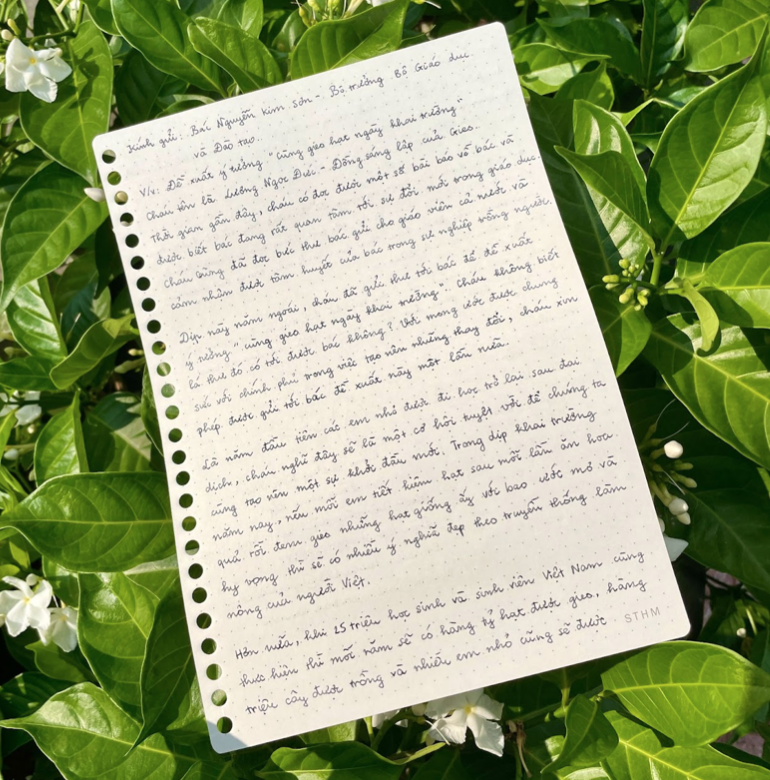 Kính gửi: Bác Nguyễn Kim Sơn - Bộ trưởng Bộ Giáo dục
và Đào tạo.
V/v: Đề xuất ý tưởng "Cùng gieo hạt ngày khai trường"
Cháu tên là Lương Ngọc Đức - Đồng sáng lập của Gieo.
Thời gian gần đây, cháu có đọc được một số bài báo về bác và
được biết bác đang rất quan tâm tới sự đổi mới trong giáo dục.
Cháu cũng đã đọc bức thư bác gửi cho giáo viên cả nước và
cảm nhận được tâm huyết của bác trong sự nghiệp trồng người.
Dịp này năm ngoái, cháu đã gửi thư tới bác để đề xuất
ý tưởng "cùng gieo hạt ngày khai trường". Cháu không biết
lá thư đó có tới được bác không? Với mong ước được chung
sức với chính phủ trong việc tạo nên những thay đổi, cháu xin
phép được gửi tới bác đề xuất này một lần nữa.
Là năm đầu tiên các em nhỏ được đi học trở lại sau đại
dịch, cháu nghĩ đây sẽ là một cơ hội tuyệt vời để chúng ta
cùng tạo nên một sự khởi đầu mới. Trong dịp khai trường
năm nay, nếu mỗi em tiết kiệm hạt sau mỗi lần ăn hoa
quả rồi đem gieo những hạt giống ấy với bao ước mơ và
hy vọng thì sẽ có nhiều ý nghĩa đẹp theo truyền thống làm
nông của người Việt.
Hơn nữa, khi 25 triệu học sinh và sinh viên Việt Nam cùng
thực hiện thì mỗi năm sẽ có hàng tỷ hạt được gieo, hàng
triệu cây được trồng và nhiều em nhỏ cũng sẽ được
STHM